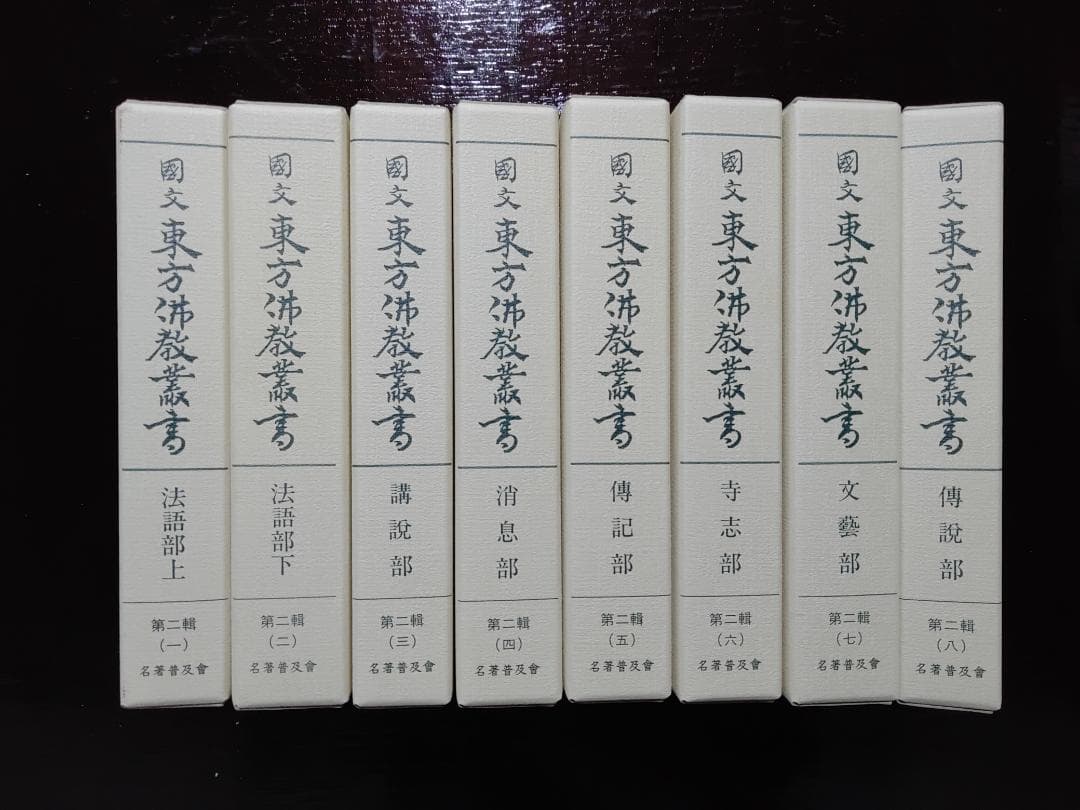 國文
東方佛教叢書
法語部上
第二輯
（一）
名著普及會
國文
東方佛教叢書
法語部下
第二輯
（二）
名著普及會
國文
東方佛教叢書
講説部
第二輯
（三）
名著普及會
國文
東方佛教叢書
消息部
第二輯
（四）
名著普及會
國文
東方佛教叢書
傳記部
第二輯
（五）
名著普及會
國文
東方佛教叢書
寺志部
第二輯
（六）
名著普及會
國文
東方佛教叢書
文藝部
第二輯
（七）
名著普及會
國文
東方佛教叢書
傳説部
第二輯
（八）
名著普及會